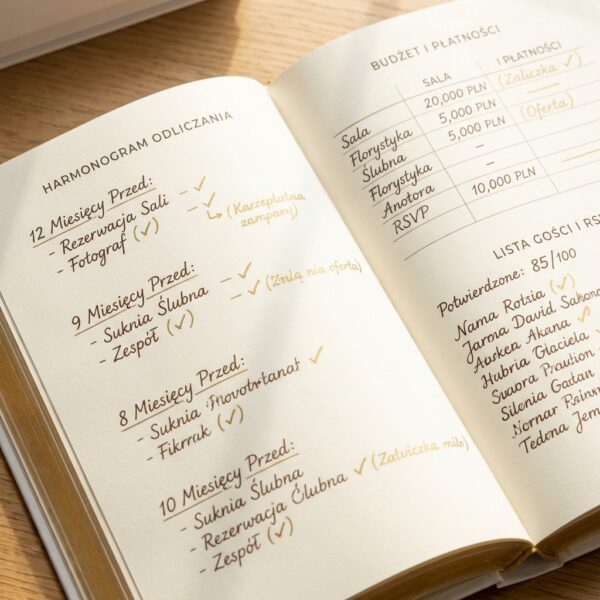 HARMONOGRAM ODLICZANIA
12 Miesięcy Przed:
- Rezerwacja Sali – ✓
- Fotograf (✓) – ✓
↳ (Karzeplatna
zampany)
9 Miesięcy Przed:
- Suknia Ślubna – ✓
- Zespół (✓) – ✓ (Znią nia oferta)
8 Miesięcy Przed:
- Suknia ✓
- Fikrruk (✓)
10 Miesięcy Przed:
- Suknia Ślubna
- Rezerwacja Ölubna ✓ (Zatviczka milo)
- Zespół (✓)
BUDŻET I PŁATNOŚCI
SALA I PŁATNOŚCI
Sala 20,000 PLN (Zaliczka ✓)
Florystyka 5,000 PLN
Ślubna 5,000 PLN (Oferta)
Florystyka –
Anotora –
RSVP 10,000 PLN
LISTA GOŚCI I RS
Potwierdzone: 85/100
Nama Rotzia (✓)
Jarona David
Aurken Akana ✓
Hubria Glaciela
Suaora
Silonia Gadan
Tedena Jem